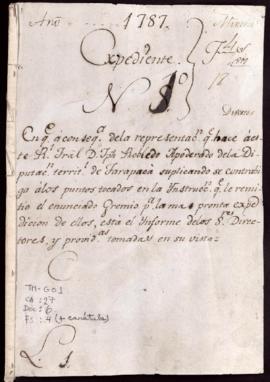 Año 1787. Mineria
Expediente
N 1º
Diversos
En q.e á conseq.a de la representac.n q.e hace á es-
te R.l Tral D. Robledo Apoderado de la
Diputac.n territ.l de Tarapacá suplicando se contraiga
á los puntos tocados en la Instruc.n q.e le remi-
tio el enunciado Gremio p.a la mas pronta expe-
dicion de ellos, está el Informe de los S.res Direc-
tores, y provid.as tomadas en su vista:
TM-GO1
CA: 27
Doc: 6
Fs: 4 (+ carátula)
L. 1.